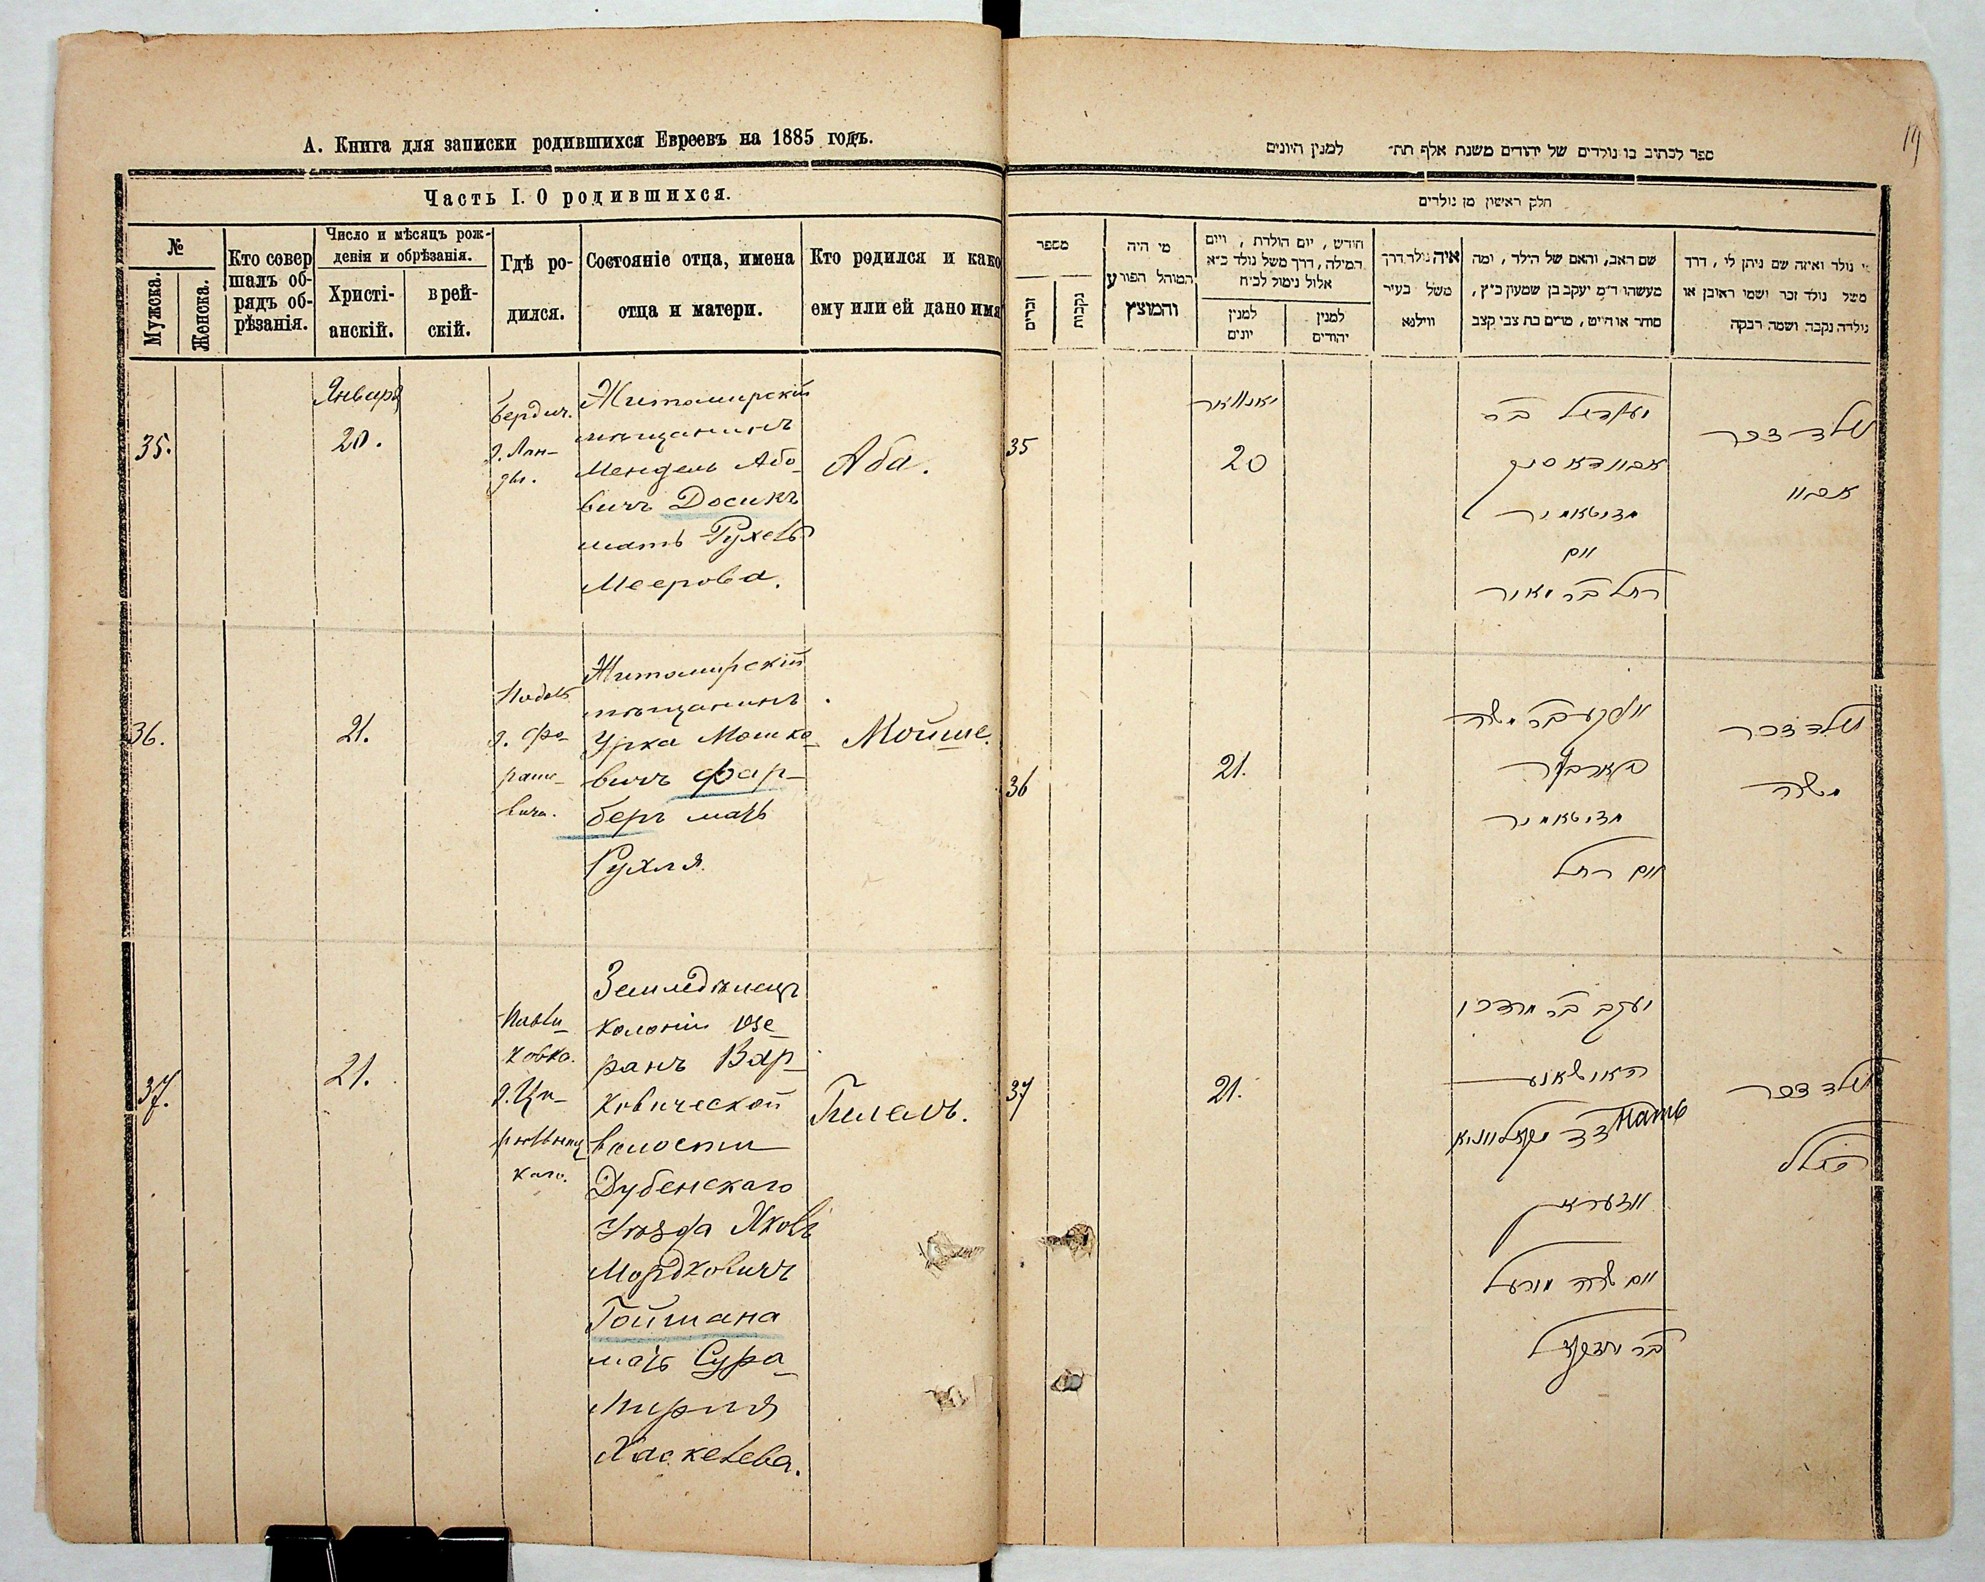 А. Книга для записки родившихся Евреевъ на 1885 годъ.
Часть I. О родившихся.
№
Мужска.
Женска.
Кто совер
шалъ об-
рядъ об-
рѣзанія.
Число и мѣсяцъ рож-
денія и обрѣзанія.
Христі-
анскій.
врей-
скій.
Гдѣ ро-
дился.
Состояніе отца, имена
отца и матери.
Кто родился и како
ему или ей дано имя
35.
Января
20.
Бердич.
д. Лан-
ды.
Житомирскій
мѣщанинъ
Мендель Або-
вичъ Досикъ
мать Рухель
Меерова.
Аба.
36.
21.
д. Фо-
Житомирскій
мѣщанинъ
Урка Мошко-
вичъ Фар-
беръ мать
Рухля
Мойше.
37.
21.
Павли-
ковка.
Земледѣлецъ
колоніи Озе-
ранъ Вар-
ковической
волости
Дубенскаго
Уѣзда Яковъ
Мордковичъ
Гойшана
мать Сура-
Мирля
Хаскелева.
Гилель.
19
ספר לכתוב בו נולדים של יהודים משנת אלף תת־ למנין היונים
חלק ראשון מן נולדים
מספר
זכרים
נקבות
מי היה
המוהל הפורע
והמוצץ
חודש, יום הולדת, ויום
המילה, דרך משל נולד כ״א
אלול נימול לכ״ח
למנין
יונים
למנין
יהודים
איה נולד, דרך
משל בעיר
ווילנא
שם האב, והאם של הילד, ומה
מעשהו ד״מ יעקב בן שמעון כ״ץ,
סוחר או חייט, מרים בת צבי קצב
י נולד ואיזה שם ניתן לו, דרך
משל נולד זכר ושמו ראובן או
נולדה נקבה ושמה רבקה
35
יאנוואר
20
זשיטאמיר
אם
רחל בר מאיר
נולד זכר
אבא
36
21.
בר משה
פארבער
זשיטאמיר
אם רחל
נולד זכר
משה
37
21.
יעקב בר מרדכי
האישאנע
мать
אם שרה מירעל
בר יחזקאל
נולד זכר
הילל